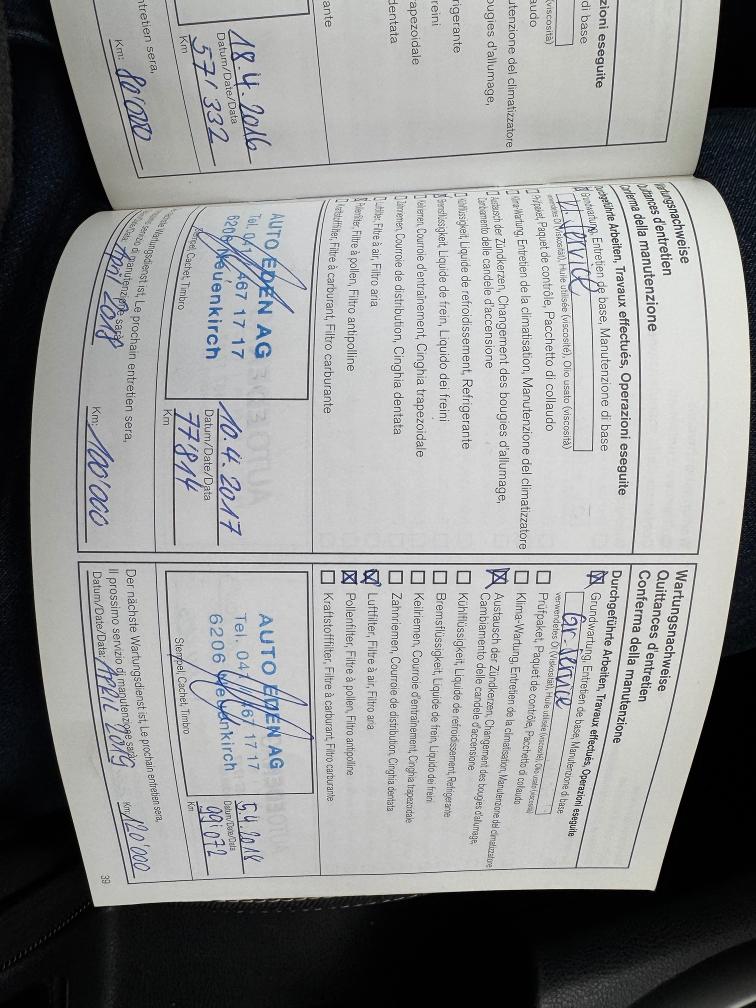 zioni eseguite
di base
(viscosità)
audo
utenzione del climatizzatore
ougies d'allumage,
rigerante
freini
rapezoidale
dentata
ante
18.4.2016
Datum/Date/Data
57'332
Km
ntretien sera,
Km: 80'000
Wartungsnachweise
Quittances d'entretien
Conferma della manutenzione
Durchgeführte Arbeiten, Travaux effectués, Operazioni eseguite
Grundwartung, Entretien de base, Manutenzione di base
Service
verwendetes Öl (Viskosität), Huile utilisée (viscosité), Olio usato (viscosità)
Prüfpaket, Paquet de contrôle, Pacchetto di collaudo
Klima-Wartung, Entretien de la climatisation, Manutenzione del climatizzatore
Austausch der Zündkerzen, Changement des bougies d'allumage,
Cambiamento delle candele d'accensione
Kühlflüssigkeit, Liquide de refroidissement, Refrigerante
Bremsflüssigkeit, Liquide de frein, Liquido dei freini
Keilriemen, Courroie d'entraînement, Cinghia trapezoidale
Zahnriemen, Courroie de distribution, Cinghia dentata
Luftfilter, Filtre à air, Filtro aria
Pollenfilter, Filtre à pollen, Filtro antipolline
Kraftstofffilter, Filtre à carburant, Filtro carburante
AUTO EDEN AG
Tel. 041 467 17 17
6206 Neuenkirch
Stempel, Cachet, Timbro
10.4.2017
Datum/Date/Data
77'814
Km
Wartungsdienst ist, Le prochain entretien sera,
servizio di manutenzione sarà
April 2018
Km: 100'000
Wartungsnachweise
Quittances d'entretien
Conferma della manutenzione
Durchgeführte Arbeiten, Travaux effectués, Operazioni eseguite
Grundwartung, Entretien de base, Manutenzione di base
Gr. Service
verwendetes Öl (Viskosität), Huile utilisée (viscosité), Olio usato (viscosità)
Prüfpaket, Paquet de contrôle, Pacchetto di collaudo
Klima-Wartung, Entretien de la climatisation, Manutenzione del climatizzatore
Austausch der Zündkerzen, Changement des bougies d'allumage,
Cambiamento delle candele d'accensione
Kühlflüssigkeit, Liquide de refroidissement, Refrigerante
Bremsflüssigkeit, Liquide de frein, Liquido dei freini
Keilriemen, Courroie d'entraînement, Cinghia trapezoidale
Zahnriemen, Courroie de distribution, Cinghia dentata
Luftfilter, Filtre à air, Filtro aria
Pollenfilter, Filtre à pollen, Filtro antipolline
Kraftstofffilter, Filtre à carburant, Filtro carburante
AUTO EDEN AG
Tel. 041 467 17 17
6206 Neuenkirch
Stempel, Cachet, Timbro
5.4.2018
Datum/Date/Data
99'072
Km
Der nächste Wartungsdienst ist, Le prochain entretien sera,
Il prossimo servizio di manutenzione sarà
Datum/Date/Data: April 2019
Km: 120'000
39